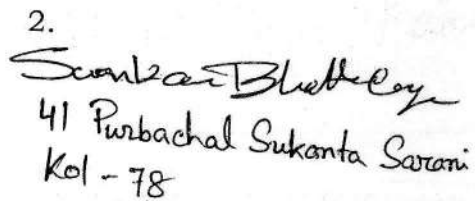 2.
Sankar Bhattacharya
41 Purbachal Sukanta Sarani
Kol - 78